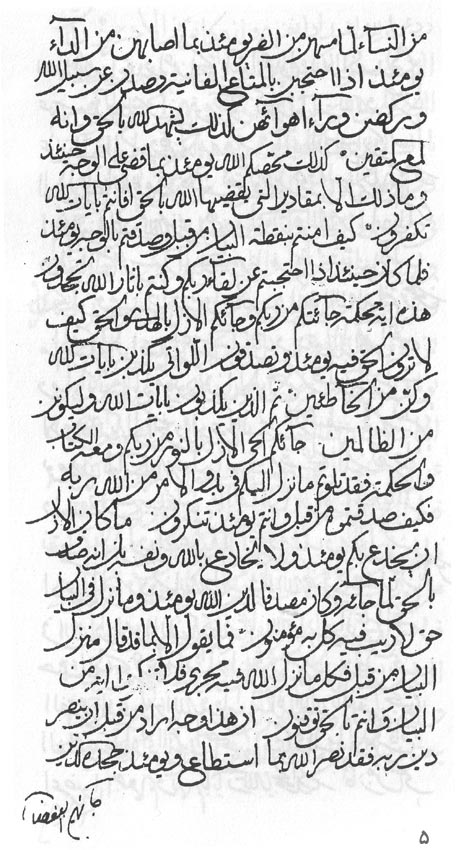 من النساء لما مسهن من القر يومئذ بما اصابهن من الداء
يومئذ اذا احتجبن بالمتاع الفانية وصدن عن سبيل الله
وركضن وراء اهوائهن كذلك يشهد لله بالحق وانه
لمع متقين كذلك محصكم الله يومئذ بما قضى على الوجه حينئذ
وما ذلك الا بمقادير التي يقضيها الله بالحق افانتم بايات الله
تكفرون كيف امنتم بنقطة البيان من قبل وصدقتم بالوجه يومئذ
فلما كان حينئذ اذا احتجبتم عن لقاء ربكم وكنتم باثار الله تجحدون
هذه اية محكمة جائتكم من ربكم وجائكم الازل بالهدى والحق كيف
لا ترون الحق فيه يومئذ وتصدقون اللواتي يكذبن بايات الله
وكن من الخاطئين ثم الذين يكذبون بايات الله وليكونن
من الظالمين جائكم الحق الازل بالنور من ربكم ومعه الكتاب
والحكمة فقد تلوتم ما نزل اليكم في بادي الامر من الله ربه
فكيف صدقتموه من قبل وانتم يومئذ تنكرون ما كان الازل
ان يخادع بكم يومئذ ولا يخادع بالله ونفسه بل انه صادق
بالحق لما جائه وكان مصدقا لدين الله يومئذ وما نزل في البيان
حق لا ريب فيه كل به مؤمنون فما يقول الا بما قد قال منزل
البيان من قبل فكل ما نزل الله فيه من
البيان وانتم بالحق توقنون ان هذا وجه اراد من قبل ان ينصر
دين ربه فقد نصر الله بما استطاع ويومئذ جحده الذين
۵